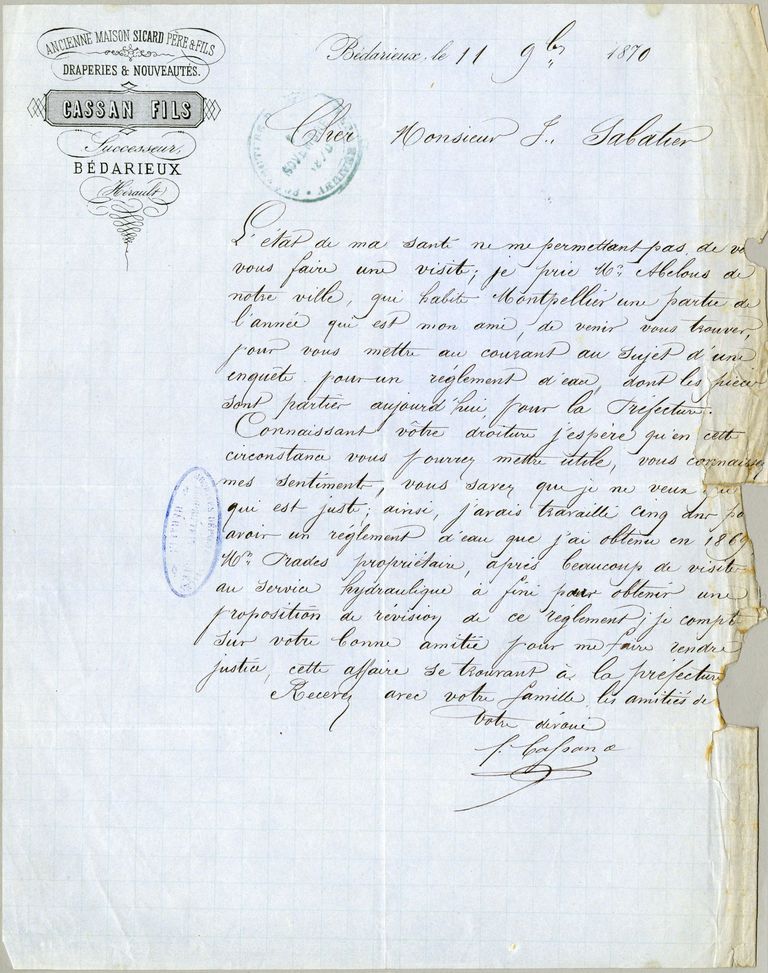 ANCIENNE MAISON SICARD PÈRE & FILS
DRAPERIES & NOUVEAUTÉS.
CASSAN FILS
Successeur,
BÉDARIEUX
Hérault
Bédarieux, le 11 9bre 1870
Cher Monsieur J. Sabatier
L'état de ma santé ne me permettant pas de
vous faire une visite; je prie Mr. Abelous de
notre ville, qui habite Montpellier une partie de
l'année qui est mon ami, de venir vous trouver,
pour vous mettre au courant au sujet d'une
enquête pour un réglement d'eau, dont les pièce
sont partier aujourd'hui, pour la Préfecture.
Connaissant vôtre droiture j'espère qu'en cette
circonstance vous pourrez mettre utile, vous connaissez
mes sentiments, vous savez que je ne veux
qui est juste; ainsi, j'avais travaillé cinq ans po
avoir un réglement d'eau que j'ai obtenu en 1869
Mr. Prades propriétaire, après beaucoup de visite
au service hydraulique à fini pour obtenir une
proposition de révision de ce réglement; je compt
sur votre bonne amitié pour me faire rendre
justice, cette affaire se trouvant à la préfecture
Recevez avec votre famille les amitiés de
Votre dévoué
Cassan